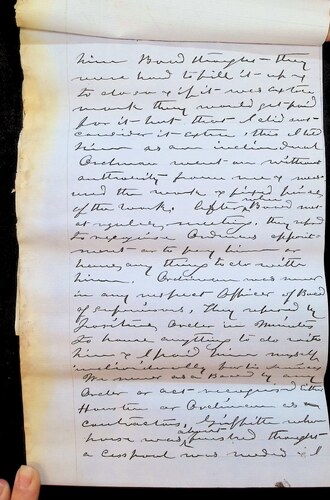 him Board thought they
were hard to fill it up &
to do so & if it was extra
work they would get paid
for it but that I did not
consider it extra, this I told
him as an individual
Ordman went on without
authority from me & 
the work & fixed price
of the work. after when Board met
at regular meeting they refused
to recognise Ordmans appoint-
ment or to pay him or
have any thing to do with
him. Ordman was never
in any respect Officer of Board
of Supervisors, They refused by
positive Order in Minutes
to have anything to do with
him & I paid him myself
individually for his services
We never as a Board by any
Order or act recognised either
Houston or Ordman as
contractors, Griffith when
house was about finished thought
a cesspool was needed & I